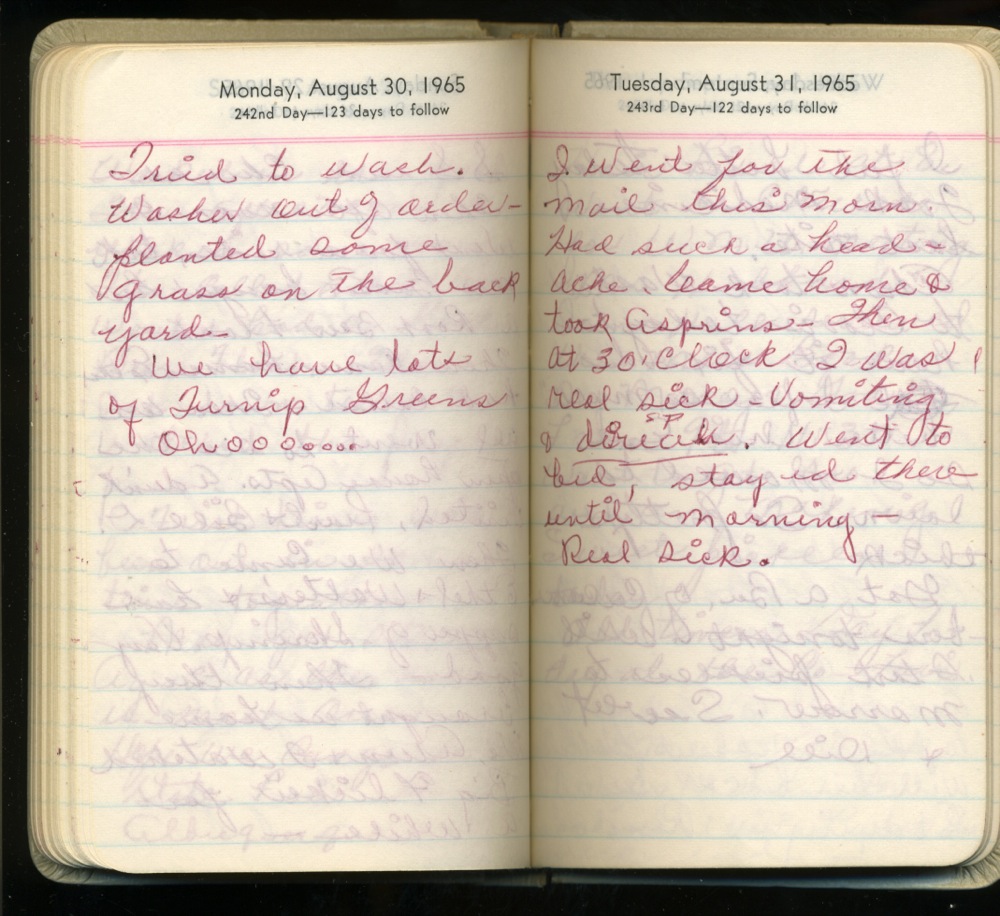 Monday, August 30, 1965
242nd Day—123 days to follow
Tried to wash.
Washer out of order-
planted some
grass on the back
yard-
We have lots
of Turnip Greens
Ohooooooo...
Tuesday, August 31, 1965
243rd Day—122 days to follow
I went for the
mail this morn.
Had such a head-
ache. Came home &
took Asprins- Then
at 3 O'Clock I was
real sick - Vomiting
sp
& direah. Went to
bed, stay ed there
until morning -
Real sick.